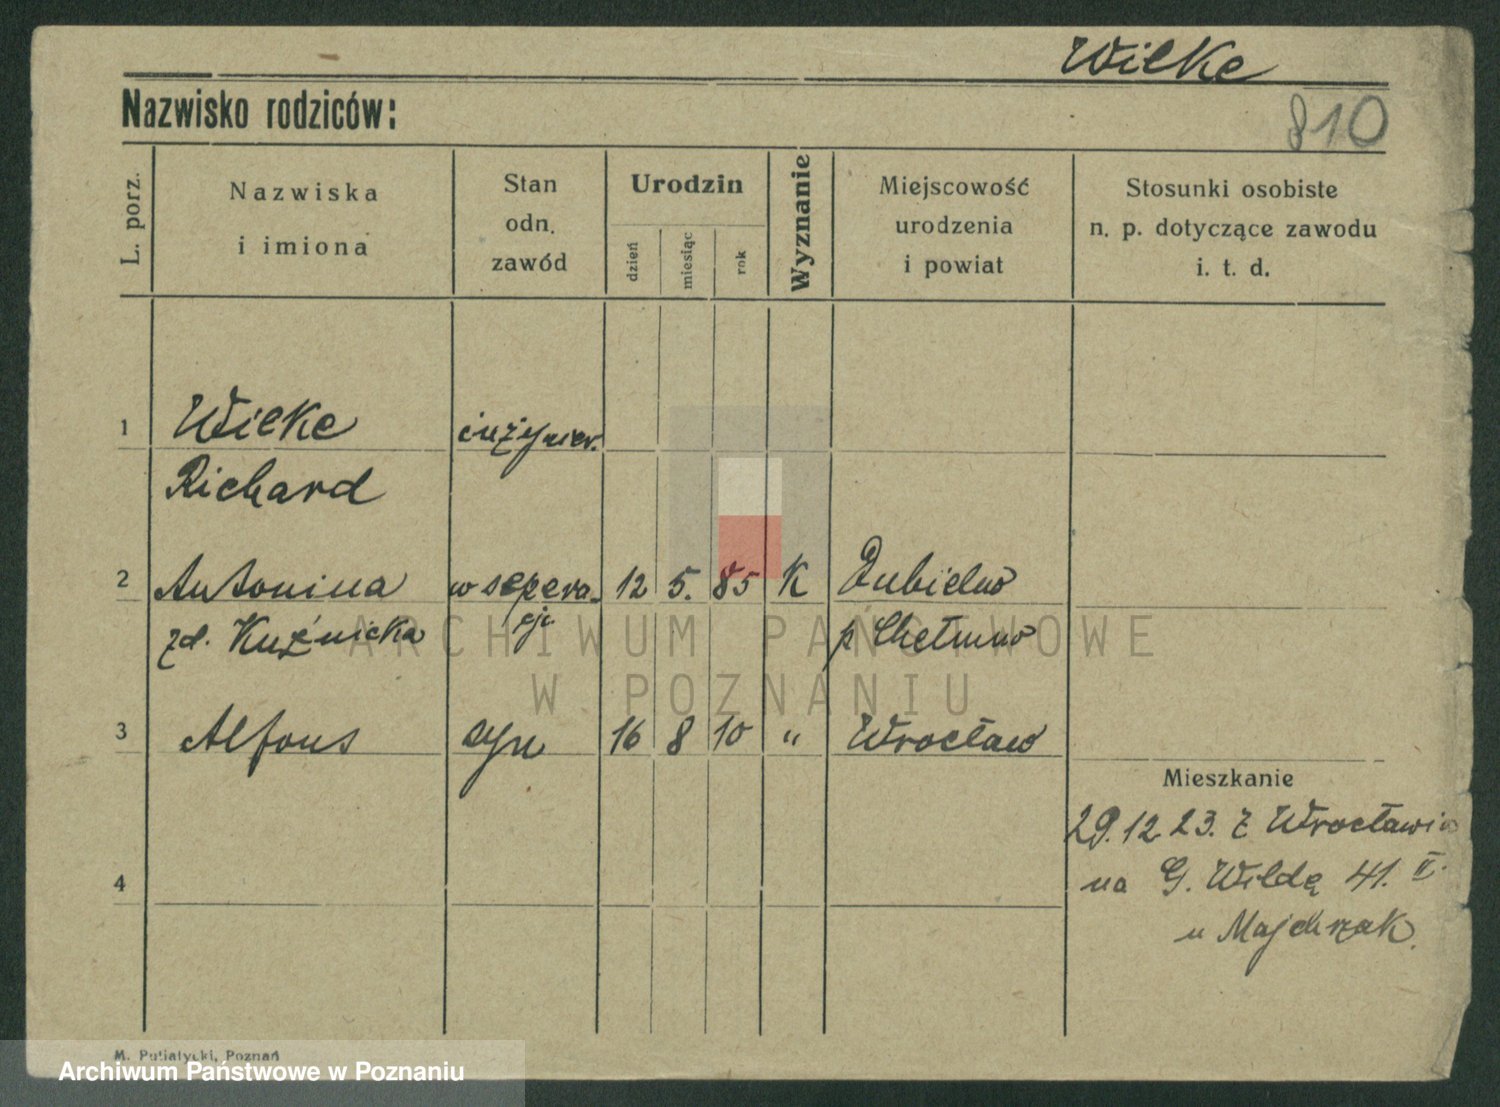 Wilke
Nazwisko rodziców:
810
L. porz.
Nazwiska
i imiona
Stan
odn.
zawód
Urodzin
dzień
miesiąc
rok
Wyznanie
Miejscowość
urodzenia
i powiat
Stosunki osobiste
n. p. dotyczące zawodu
i. t. d.
1 Wilke inżynier.
Richard
2 Antonina w sepera- 12 5. 85 K Dubielno
zd. Kuźnicka cji p Chełmno
3 Alfons syn 16 8 10 " Wrocław
Mieszkanie
29.12.23. z Wrocławia
4
na G. Wildę 41. II.
u Majchrzak.
ARCHIWUM PAŃSTWOWE
W POZNANIU
M. Putiatycki, Poznań
Archiwum Państwowe w Poznaniu